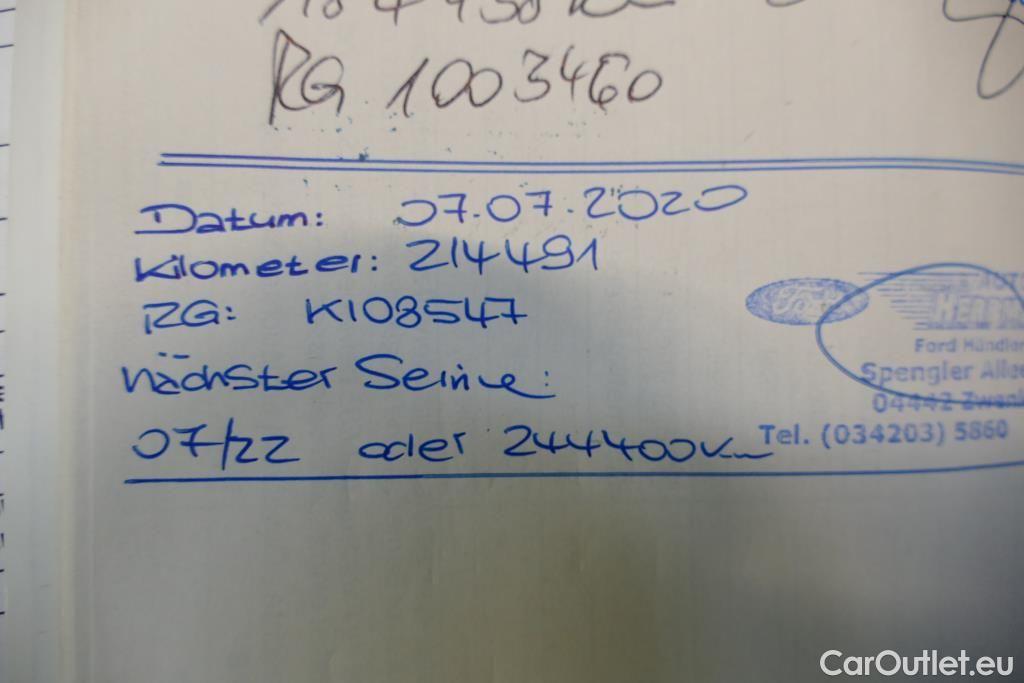 RG 1003460
Datum: 07.07.2020
Kilometer: 214491
RG: K108547
nächster Service:
07/22 oder 244400km
Ford Händler
Spengler Allee
04442 Zwenk
Tel. (034203) 5860
CarOutlet.eu